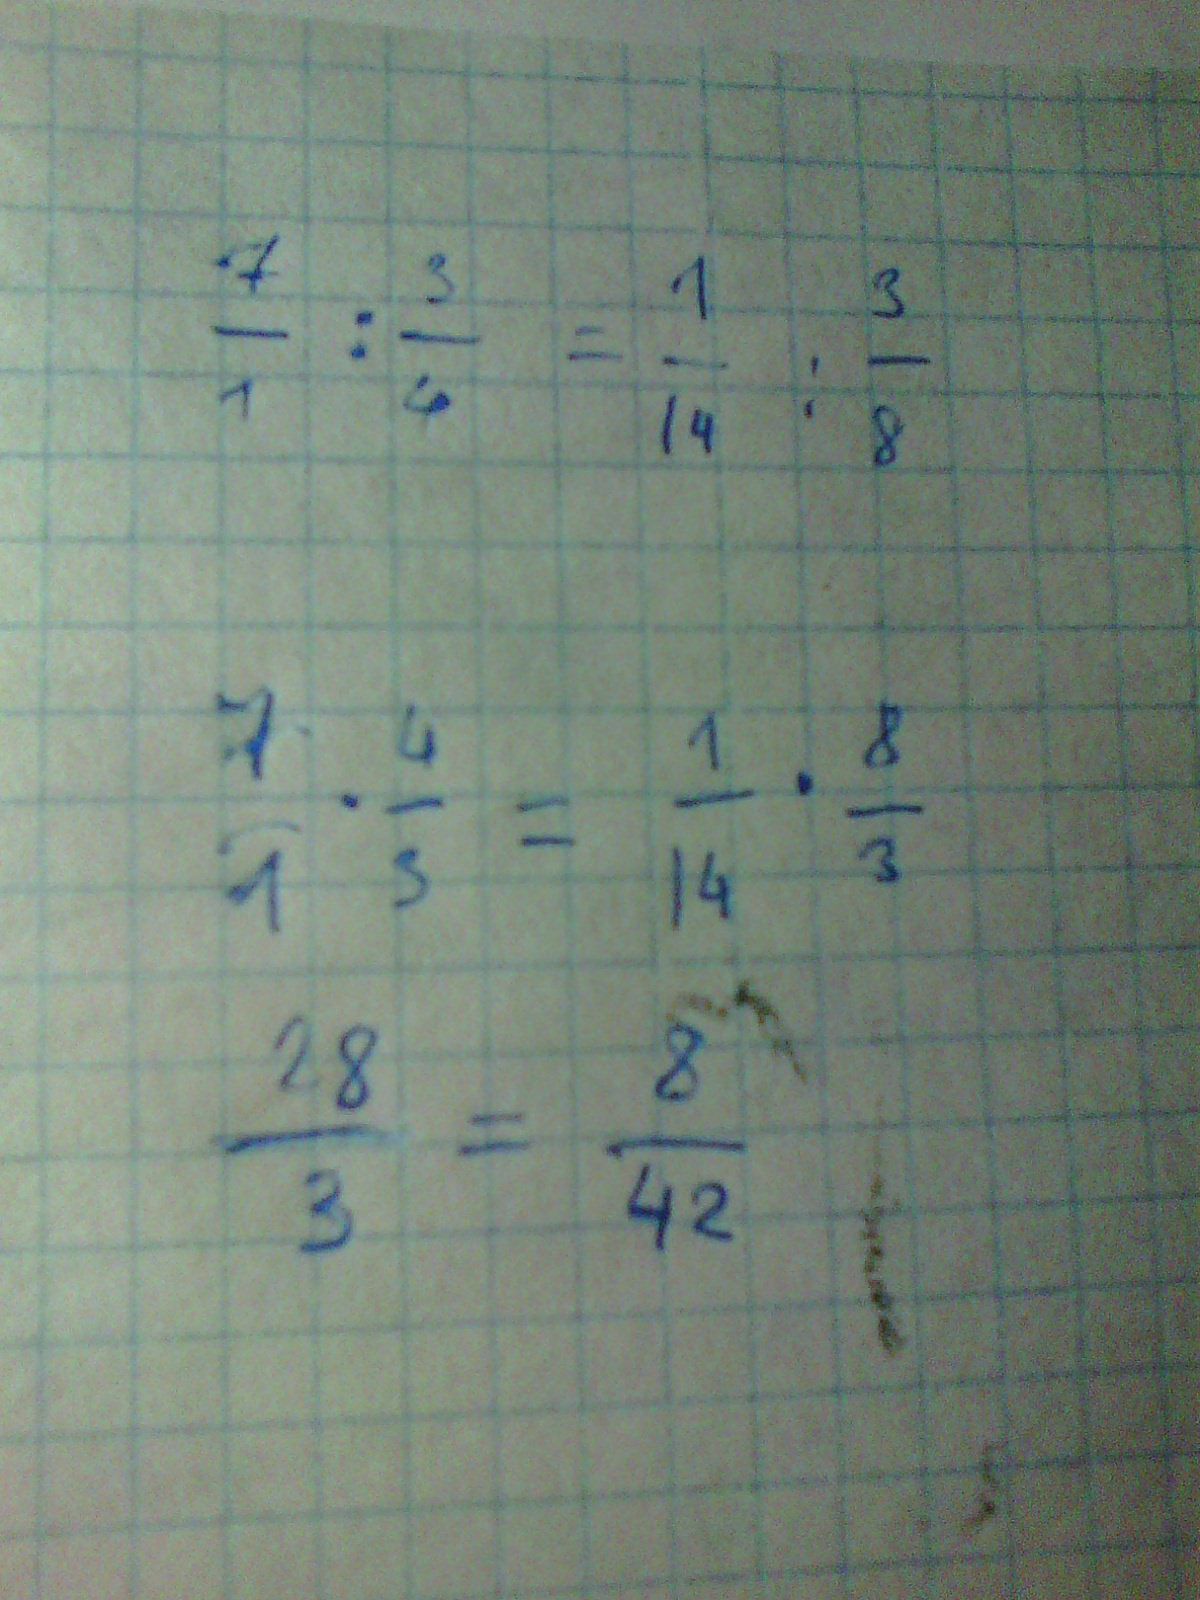 7/1 : 3/4 = 1/14 : 3/8
7/1 · 4/3 = 1/14 · 8/3
28/3 = 8/42